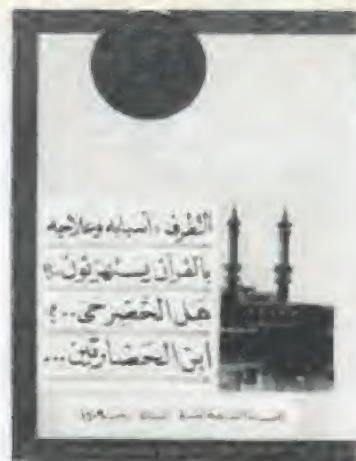 التطرف، أسبابه وعلاجه
بالقرآن يستهزئون..؟
هل الخضر حي..؟
ابن الحضارتين...